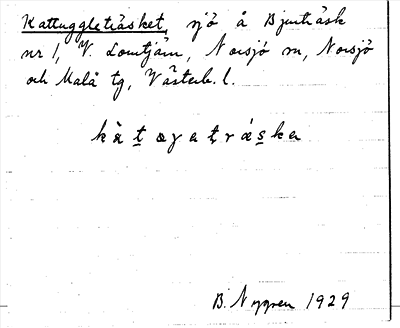 Kattuggleträsket, sjö å Bjurträsk
nr 1, V. Lomtjärn, Norsjö sn, Norsjö
och Malå tg, Västerb. l.
kàt̲ɷgatrǽs̲ka
B. Nygren 1929